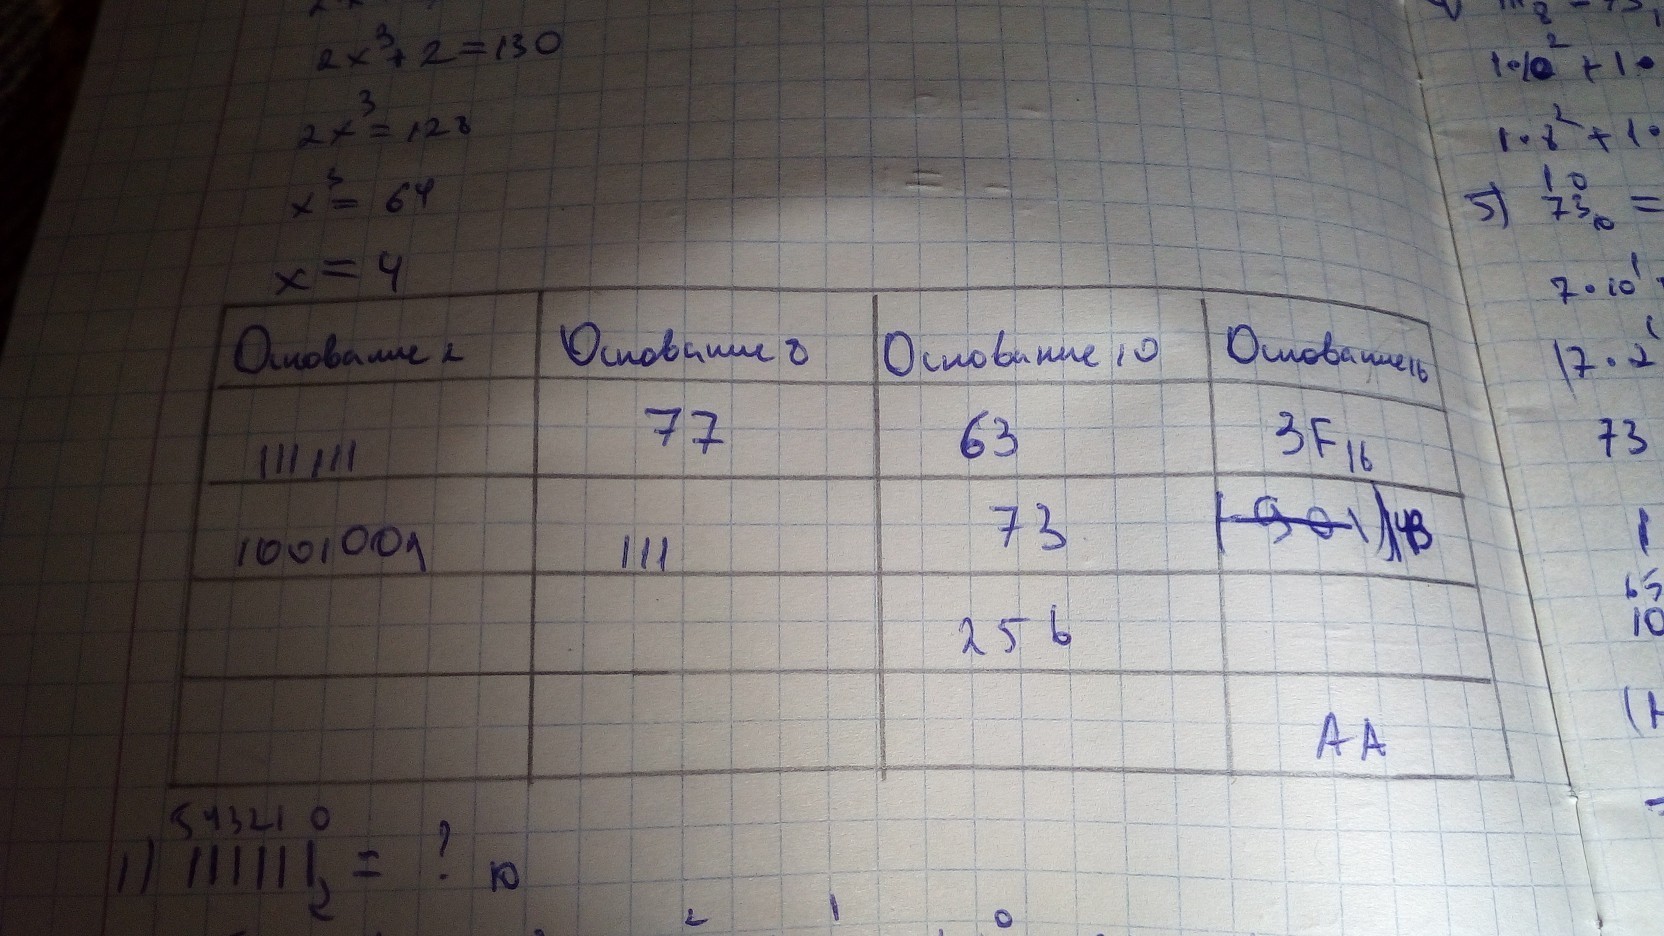 2x³+2=130
2x³=128
x³=64
x=4
Основание 2 Основание 8 Основание 10 Основание 16
111111 77 63 3F₁₆
1001001 111 73 49
256
AA
5 4 3 2 1 0
1) 111111₂ = ?₁₀
2 1 0
1·10² + 1·
1·8² + 1·
1 0
5) 73₁₀ =
7·10¹
(7·2¹
73
1
65
10